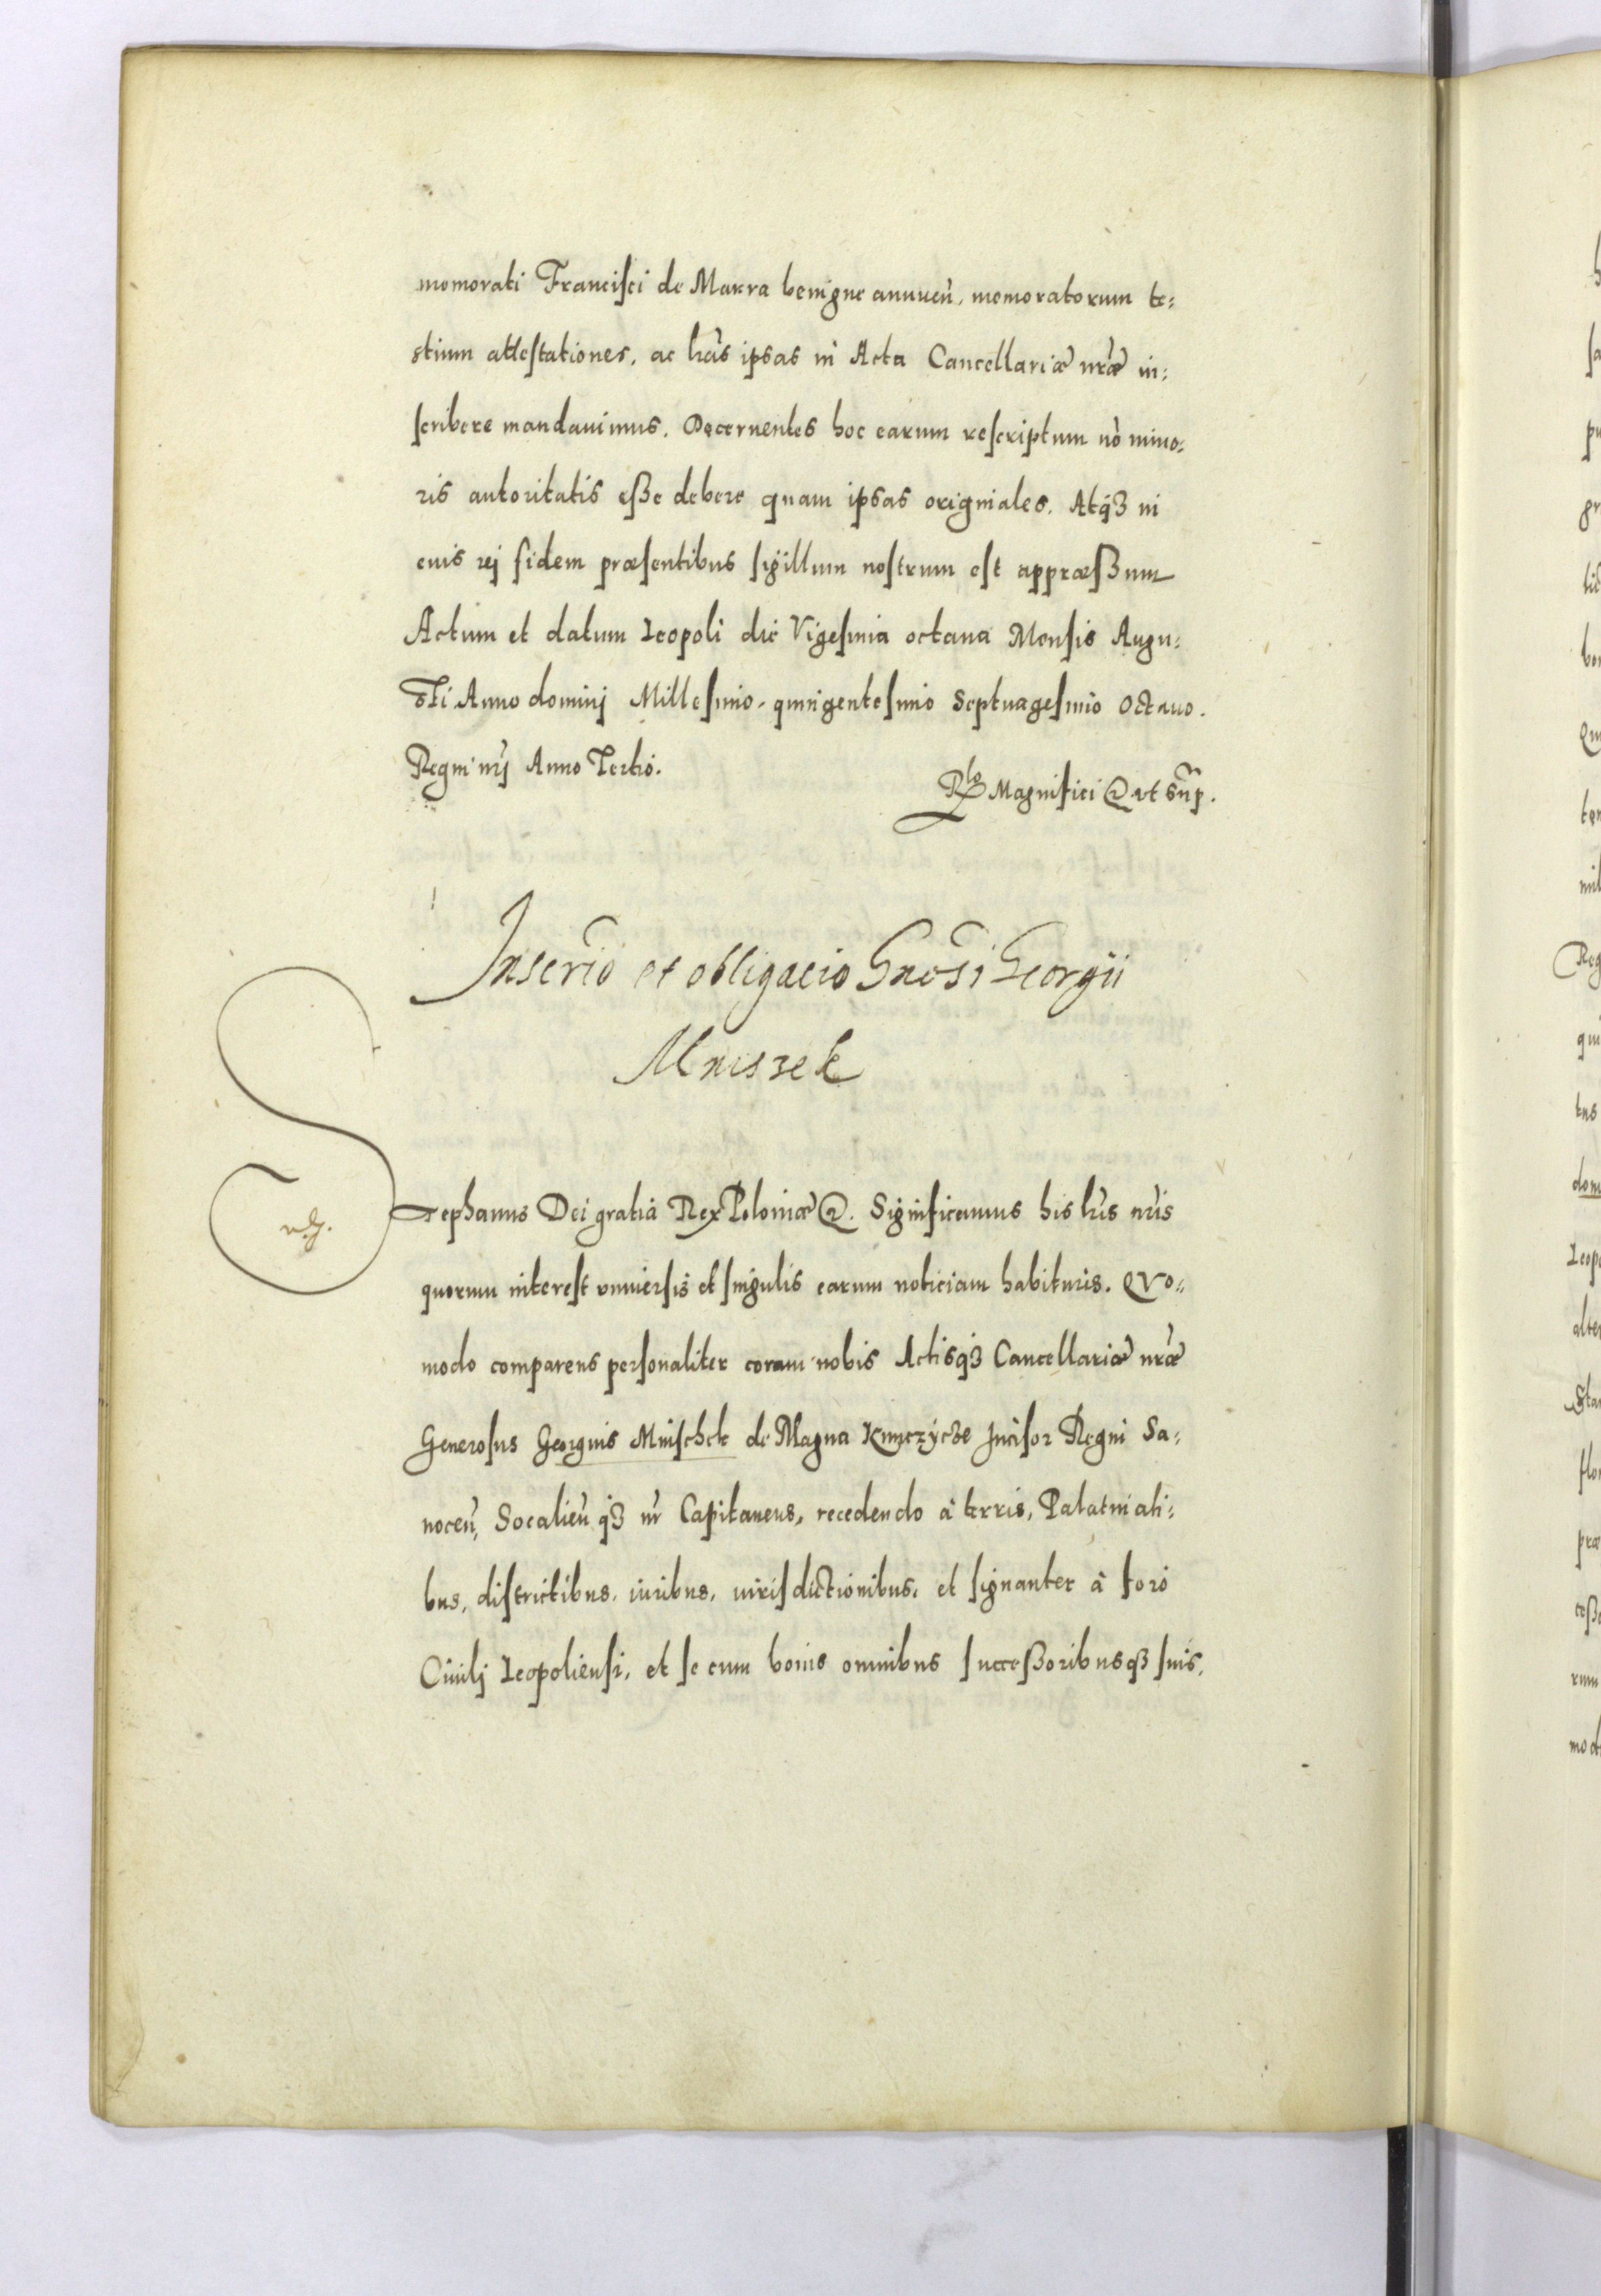 memorati Francisci de Marra benigne annueñ, memoratorum te=
stium attestationes, ac lr̃as ipsas in Acta Cancellariæ nr̃æ in=
scribere mandauimus. Decernentes hoc earum rescriptum nõ mino=
ris autoritatis esse debere quam ipsas originales. Atqȝ in
cuis rej fidem præsentibus sigillum nostrum est appræssum
Actum et datum Leopoli die Vigesima octaua Mensis Augu=
sti Anno dominj Millesimo quingentesimo Septuagesimo Octauo.
Regni nr̃j Anno Tertio.
Rlo Magnifici & vt sup̃.
Inscrio et obligacio Gnosi Georgii
Mniszek
Stephanus Dei gratia Rex Poloniæ &. Significamus his lr̃is nr̃is
quorum interest vniuersis et singulis earum noticiam habituris. Quo=
modo comparens personaliter coram nobis Actisqȝ Cancellariæ nr̃æ
Generosus Georgius Mnischek de Magna Kunczycze Incisor Regni Sa=
noceñ, Socalieñ qȝ nr̃ Capitaneus, recedendo à terris, Palatinali=
bus, districtibus, iuribus, iurisdictionibus, et signanter à foro
Ciuilj Leopoliensi, et se cum bonis omnibus successoribusqȝ suis,